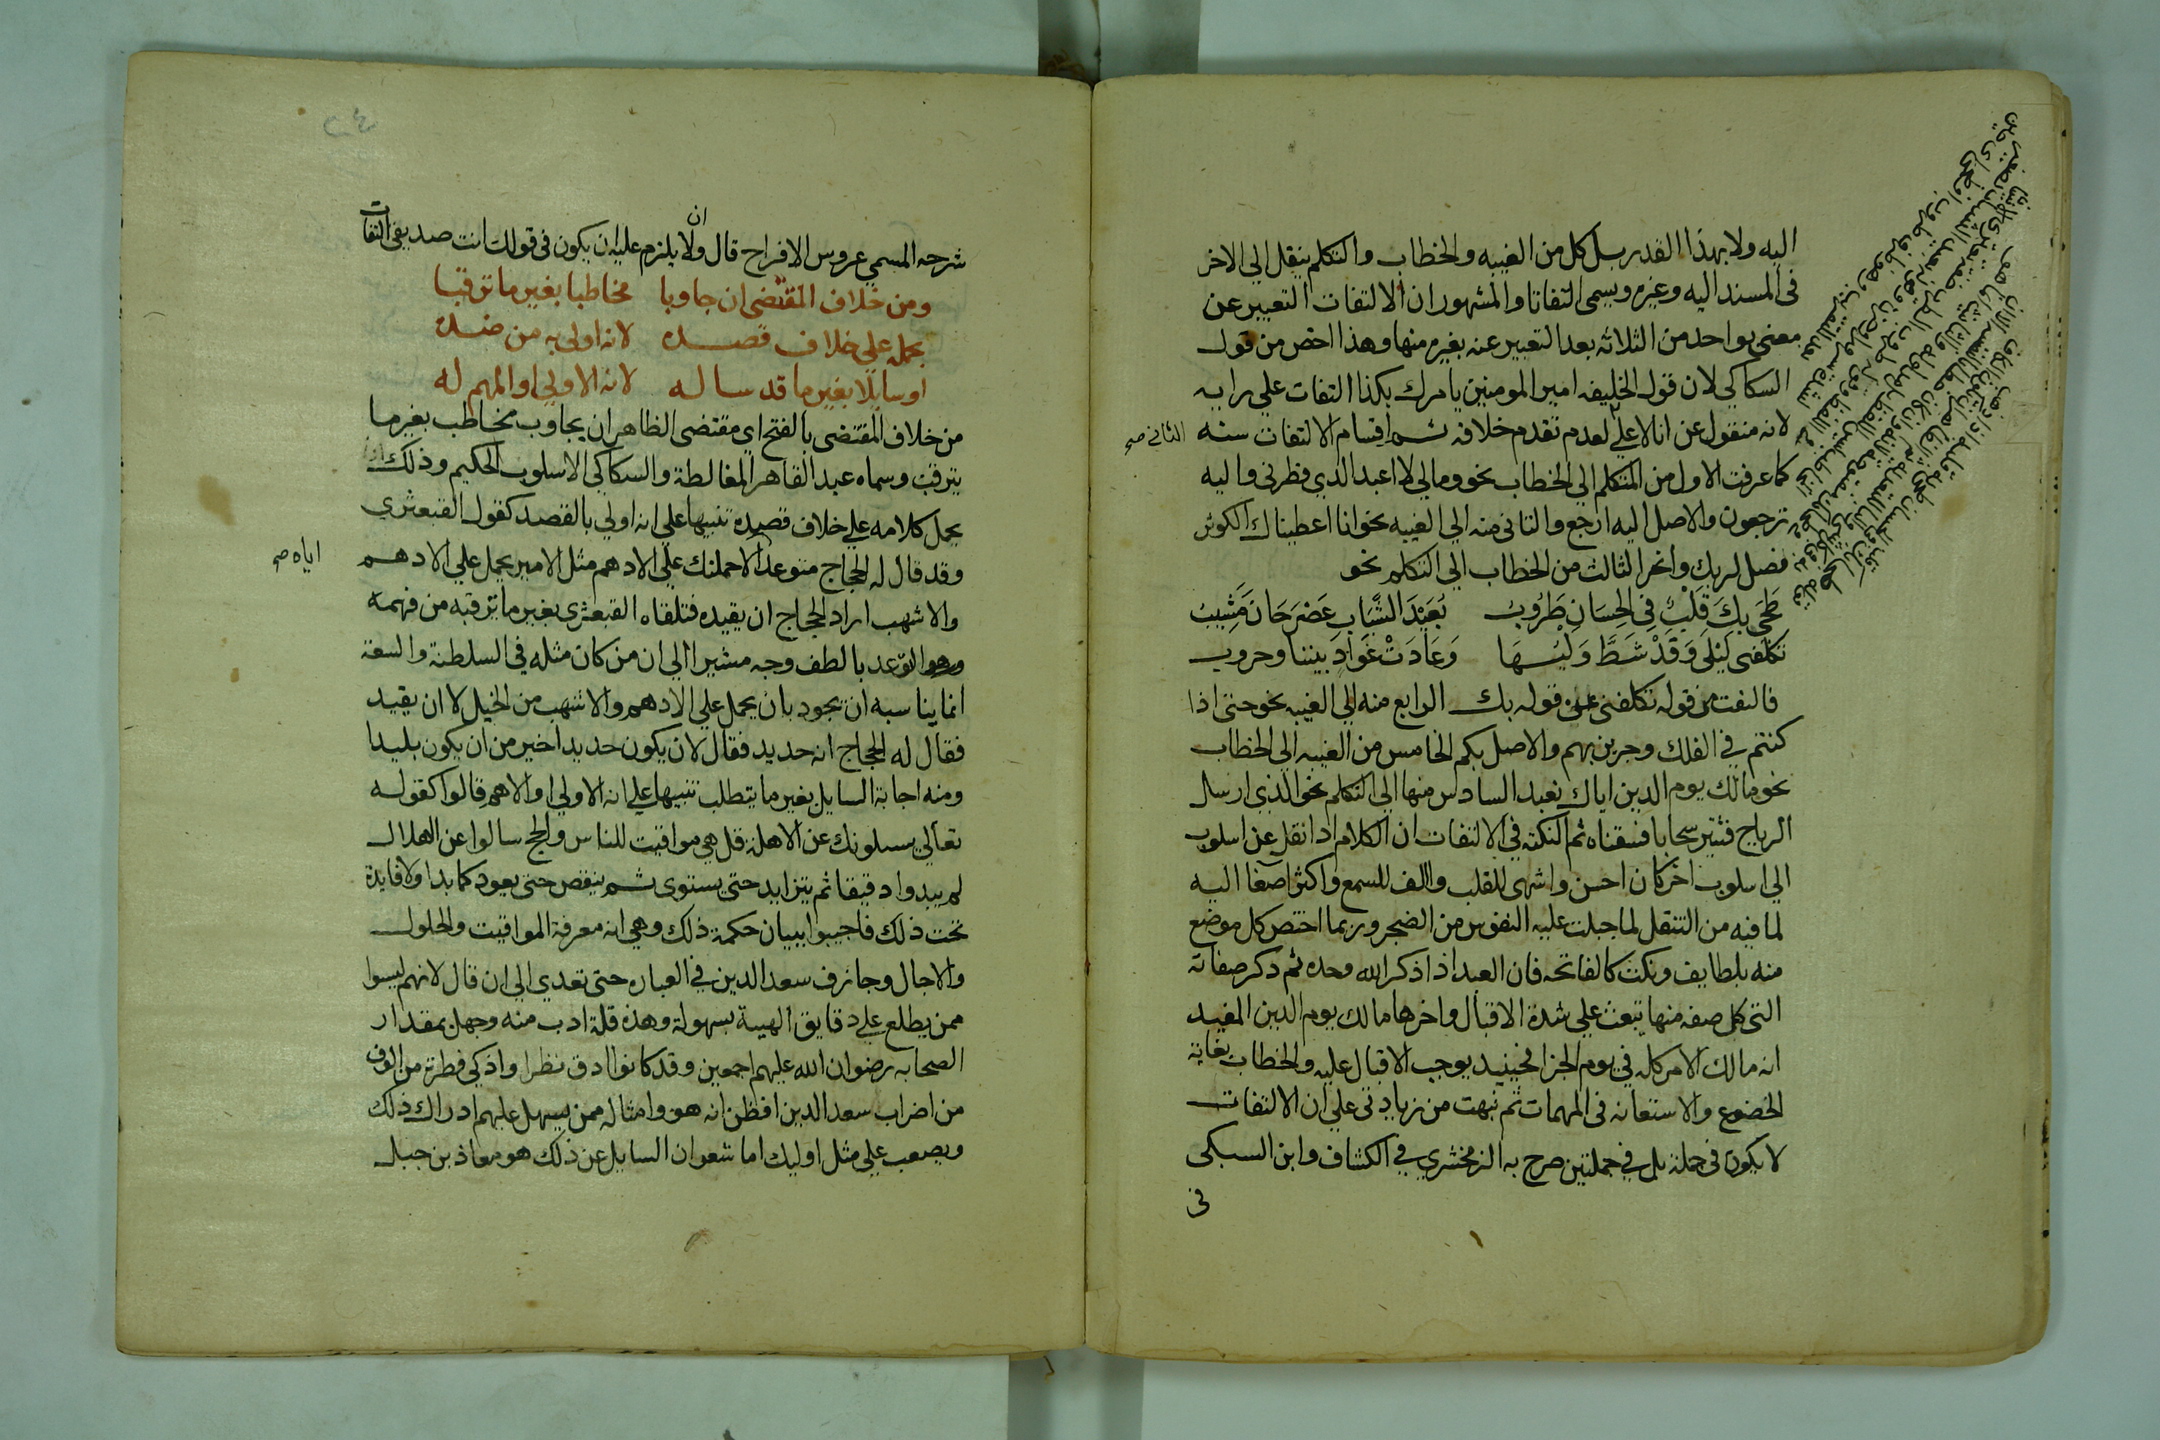 اليه ولا بهذا القدر بل كل من الغيبه والخطاب والتكلم ينقل الي الاخر
في المسند اليه وغيره ويسمى التفاتا والمشهور ان الالتفات التعبير عن
معني بواحد من الثلاثه بعد التعبير عنه بغيره منها وهذا اخص من قول
السكاكي لان قول الخليفه امير المومنين يامرك بكذا التفات علي رايه
لانه منقول عن انا لا علي الثاني صح لعدم تقدم خلافه ثم اقسام الالتفات سته
كما عرفت الاول من المتكلم الي الخطاب نحو ومالي لا اعبد الذي فطرني واليه
ترجعون والاصل اليه ارجع والثاني منه الي الغيبه نحو انا اعطيناك الكوثر
فصل لربك وانحر الثالث من الخطاب الي التكلم نحو
طَحَى بِكَ قَلْبٌ فِي الحِسَانِ طَرُوبُ بُعَيْدَ الشَّبَابِ عَصْرَ حَانَ مَشِيبُ
تكلفني لَيْلَى وَقَدْ شَطَّ وَلْيُهَا وَعَادَتْ عَوَادٍ بيننا وخروب
فالتفت من قوله تكلفني عن قوله بك الرابع منه الي الغيبه نحو حتى اذا
كنتم في الفلك وجرين بهم والاصل بكم الخامس من الغيبه الي الخطاب
نحو مالك يوم الدين اياك نعبد السادس منها الي التكلم نحو الذي ارسل
الرياح فتثير سحابا فسقناه ثم النكته في الالتفات ان الكلام اذا نقل عن اسلوب
الي اسلوب اخر كان احسن واشهى للقلب والف للسمع واكثر اصغا اليه
لما فيه من التنقل لما جبلت عليه النفوس من الضجر وربما اختص كل موضع
منه بلطايف ونكت كالفاتحه فان العبد اذا ذكر الله وحده ثم ذكر صفاته
التي كل صفه منها تبعث علي شدة الاقبال واخرها مالك يوم الدين المفيد
انه مالك الامر كله في يوم الجزا فحينيد يوجب الاقبال عليه والخطاب بغاية
الخضوع والاستعانه في المهمات ثم نبهت من زيادتي علي ان الالتفات
لا يكون في جملة بل في جملتين صرح به الزمخشري في الكشاف وابن السبكي
في
شرحه المسمي عروس الافراح قال ولا ان يلزم عليه ان يكون في قولك انت صديقي التفات
ومن خلاف المقتضى ان جاوبا مخاطبا بغير ما ترقبا
بحمله علي خلاف قصده لانه اولى به من ضده
او سايلا بغير ما قد ساله لانه الاولي او المهم له
من خلاف المقتضى بالفتح اي مقتضى الظاهر ان يجاوب مخاطب بغير ما
يترقب وسماه عبد القاهر المغالطة والسكاكي الاسلوب الحكيم وذلك
بحمل كلامه علي خلاف قصده تنبيها علي انه اولي بالقصد كقول القبعثري
وقد قال له الحجاج متوعدا اياه صح لاحملنك علي الادهم مثل الامير يحمل علي الادهم
والاشهب اراد الحجاج ان يقيده فتلقاه القبعثرى بغير ما ترقبه من فهمه
وهو التوعد بالطف وجه مشيرا الي ان من كان مثله في السلطنة والسعة
انما يناسبه ان يجود بان يحمل علي الادهم والاشهب من الخيل لا ان يقيد
فقال له الحجاج انه حديد فقال لان يكون حديدا خير من ان يكون بليدا
ومنه اجابة السايل بغير ما يتطلب تنبيها علي انه الاولي او الاهم قالوا كقوله
تعالي يسلونك عن الاهلة قل هي مواقيت للناس والحج سالوا عن الهلال
لم يبدوا دقيقا ثم يتزايد حتى يستوى ثم ينقص حتى يعود كما بدا ولا فايدة
تحت ذلك فاجيبوا ببيان حكمة ذلك وهي انه معرفة المواقيت والحلول
والاجال وجازف سعد الدين في العباره حتى تعدي الي ان قال لانهم ليسوا
ممن يطلع علي دقايق الهيية بسهولة وهذه قلة ادب منه وجهل بمقدار
الصحابه رضوان الله عليهم اجمعين وقد كانوا ادق نظرا واذكي فطرة من الوف
من اضراب سعد الدين افظن انه هو وامثاله ممن يسهل عليهم ادراك ذلك
ويصعب علي مثل اوليك اما شعر ان السايل عن ذلك هو معاذ بن جبل